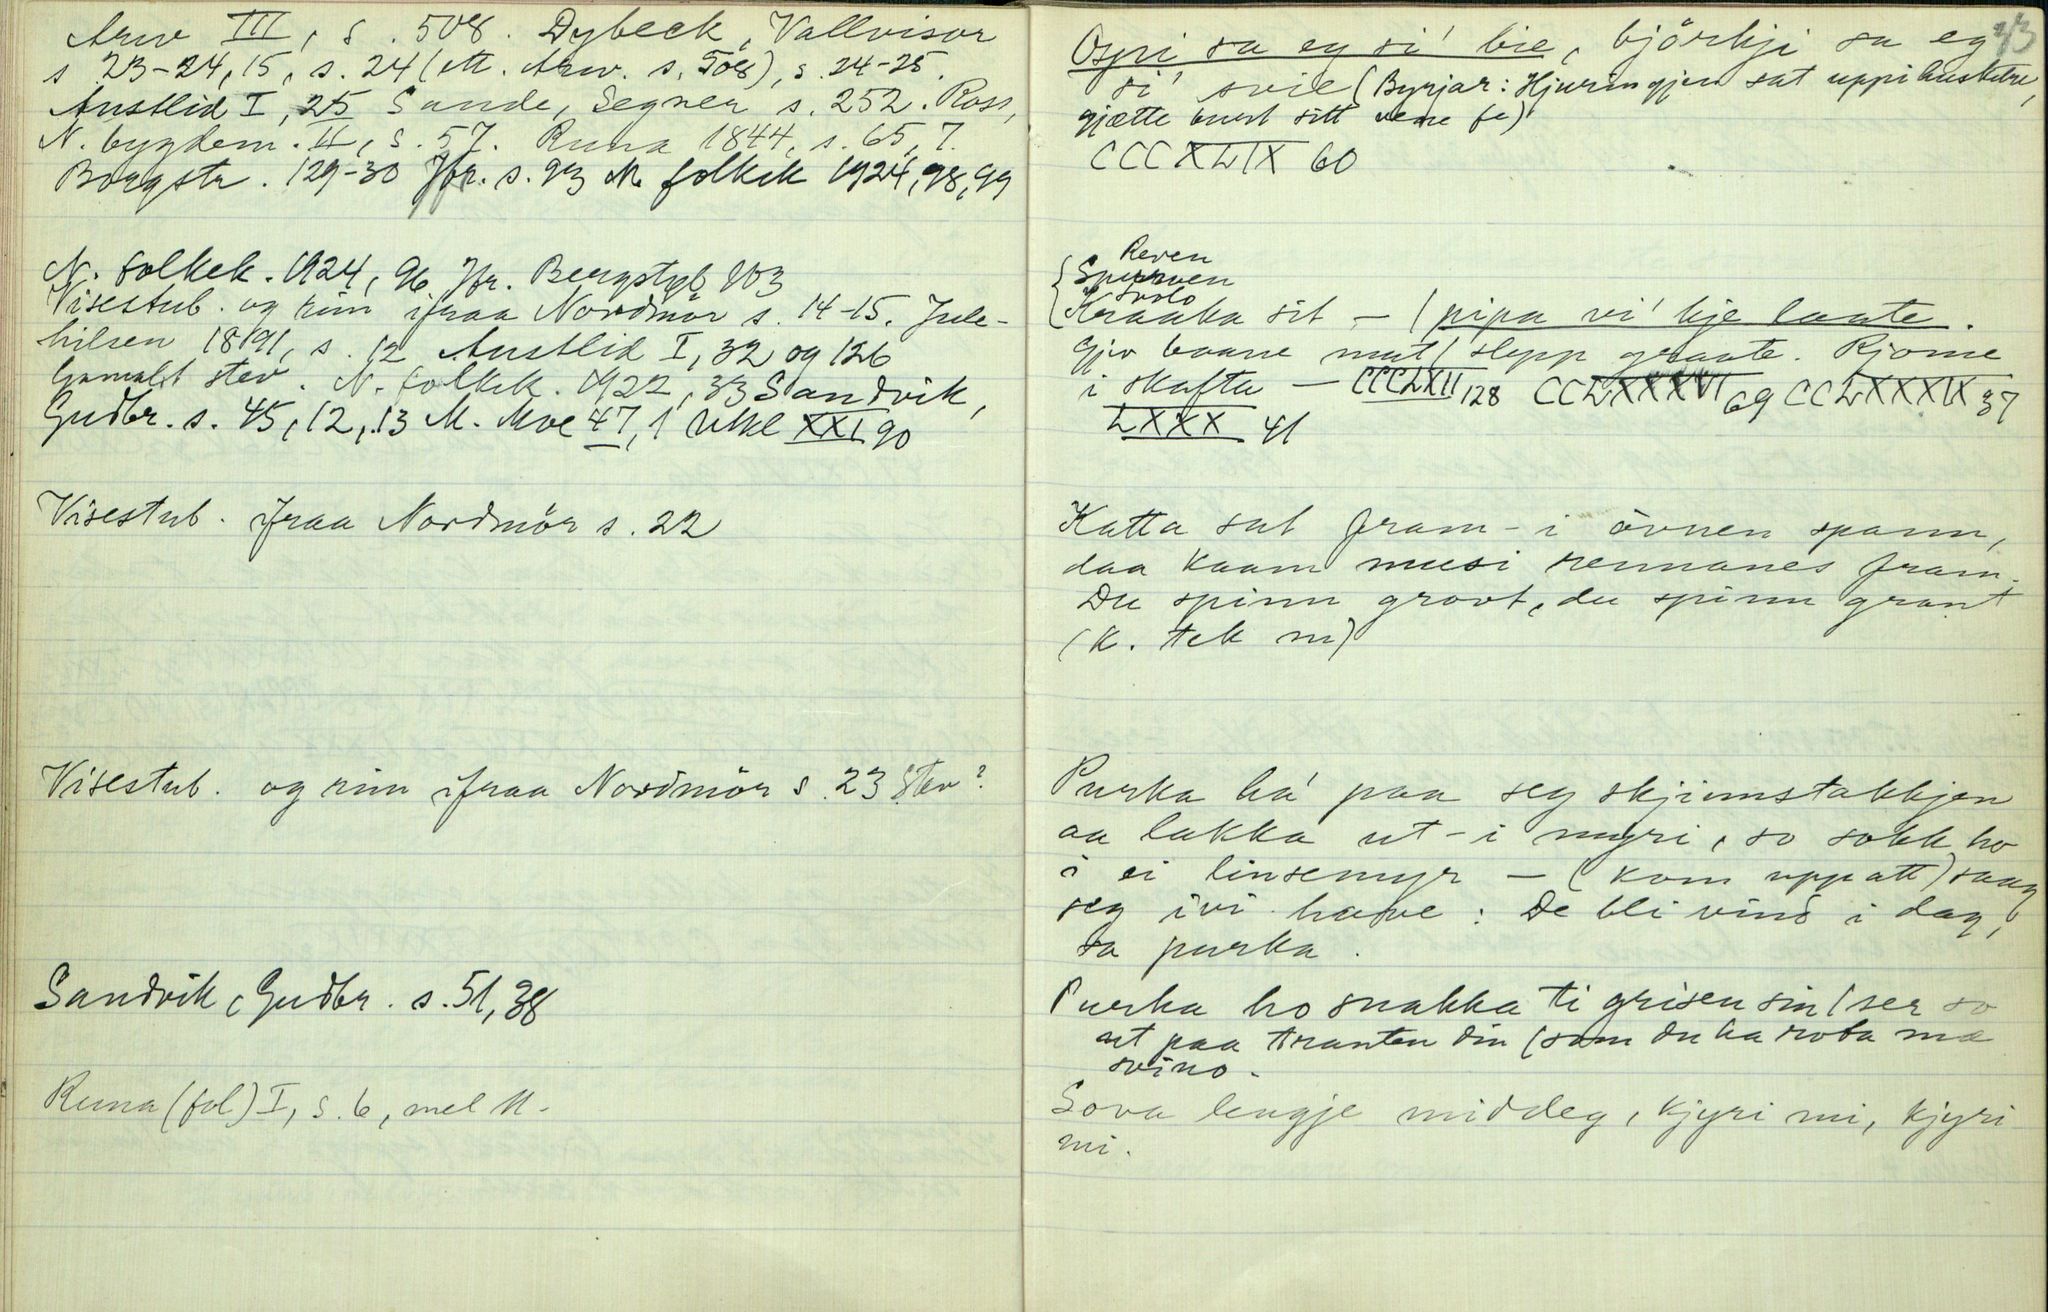 Arw III, s. 508. Dybeck, Vallvisor
s 23-24, 15, s. 24 (ett. Arw. s. 508), s. 24-25.
Austlid I, 25 Sande, Segner s. 252. Ross,
N. bygdem. II, s. 57. Runa 1844, s. 65, 7.
Borgstr. 129-30 Jfr. s. 93 N. folkek 1924, 98, 99
N. folkek. 1924, 96 Jfr. Bergstr 103
Visestub. og rim ifraa Nordmör s. 14-15. Jule-
hilsen 1891, s. 12 Austlid I, 32 og 126
Gamalt stev. N. folkek. 1922, 33 Sandvik,
Gudbr. s. 45, 12, 13 M. Moe 47, 1 Utkl XXI 90
Visestub. ifraa Nordmör s. 22
Visestub. og rim ifraa Nordmör s. 23 Stev?
Sandvik, Gudbr. s. 51, 38
Runa (fol) I, s. 6, mel 11.
43
Ospi sa eg si' bie, björkji sa eg
si' svie (Byrjar: Hjuringjen sat uppi
gjætte burt sitt vene fe)
CCCXLIX 60
Reven
Spurven
Svolo
Kraaka sit - / pipa vi' kje laate.
Gjev baane mat / slepp graate. Rjome
i skafta - CCCLXII 128 CCLXXXVI 69 CCLXXXIX 37
LXXX 41
Katta sat fram-i övnen spann,
daa kaam musi rennanes fram.
Du spinn grovt, du spinn grant
(K. tek m)
Purka há paa seg skjinnstakkjen
aa lakka ut-i myri, so sokk ho
i ei linsemyr - (kom uppatt) saag
seg ivi have: De bli vind i dag,
sa purka.
Purka ho snakka ti grisen sin / ser so
ut paa tranten din (som du ha rota ma
svino.
Sova lengje middeg, kjyri mi, kjyri
mi.